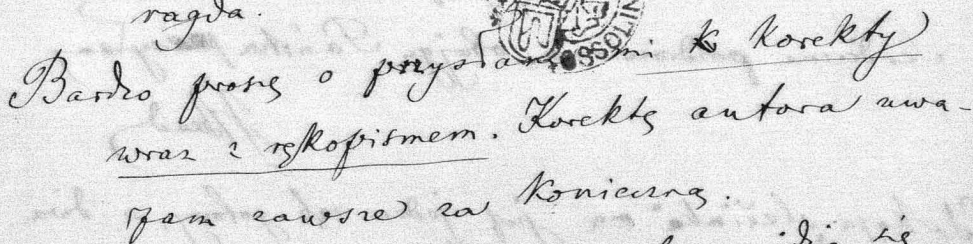 ragda.
Bardzo proszę o przysłanie mi k korekty
wraz z rękopismem. Korektę autora uwa-
żam zawsze za konieczną.
się